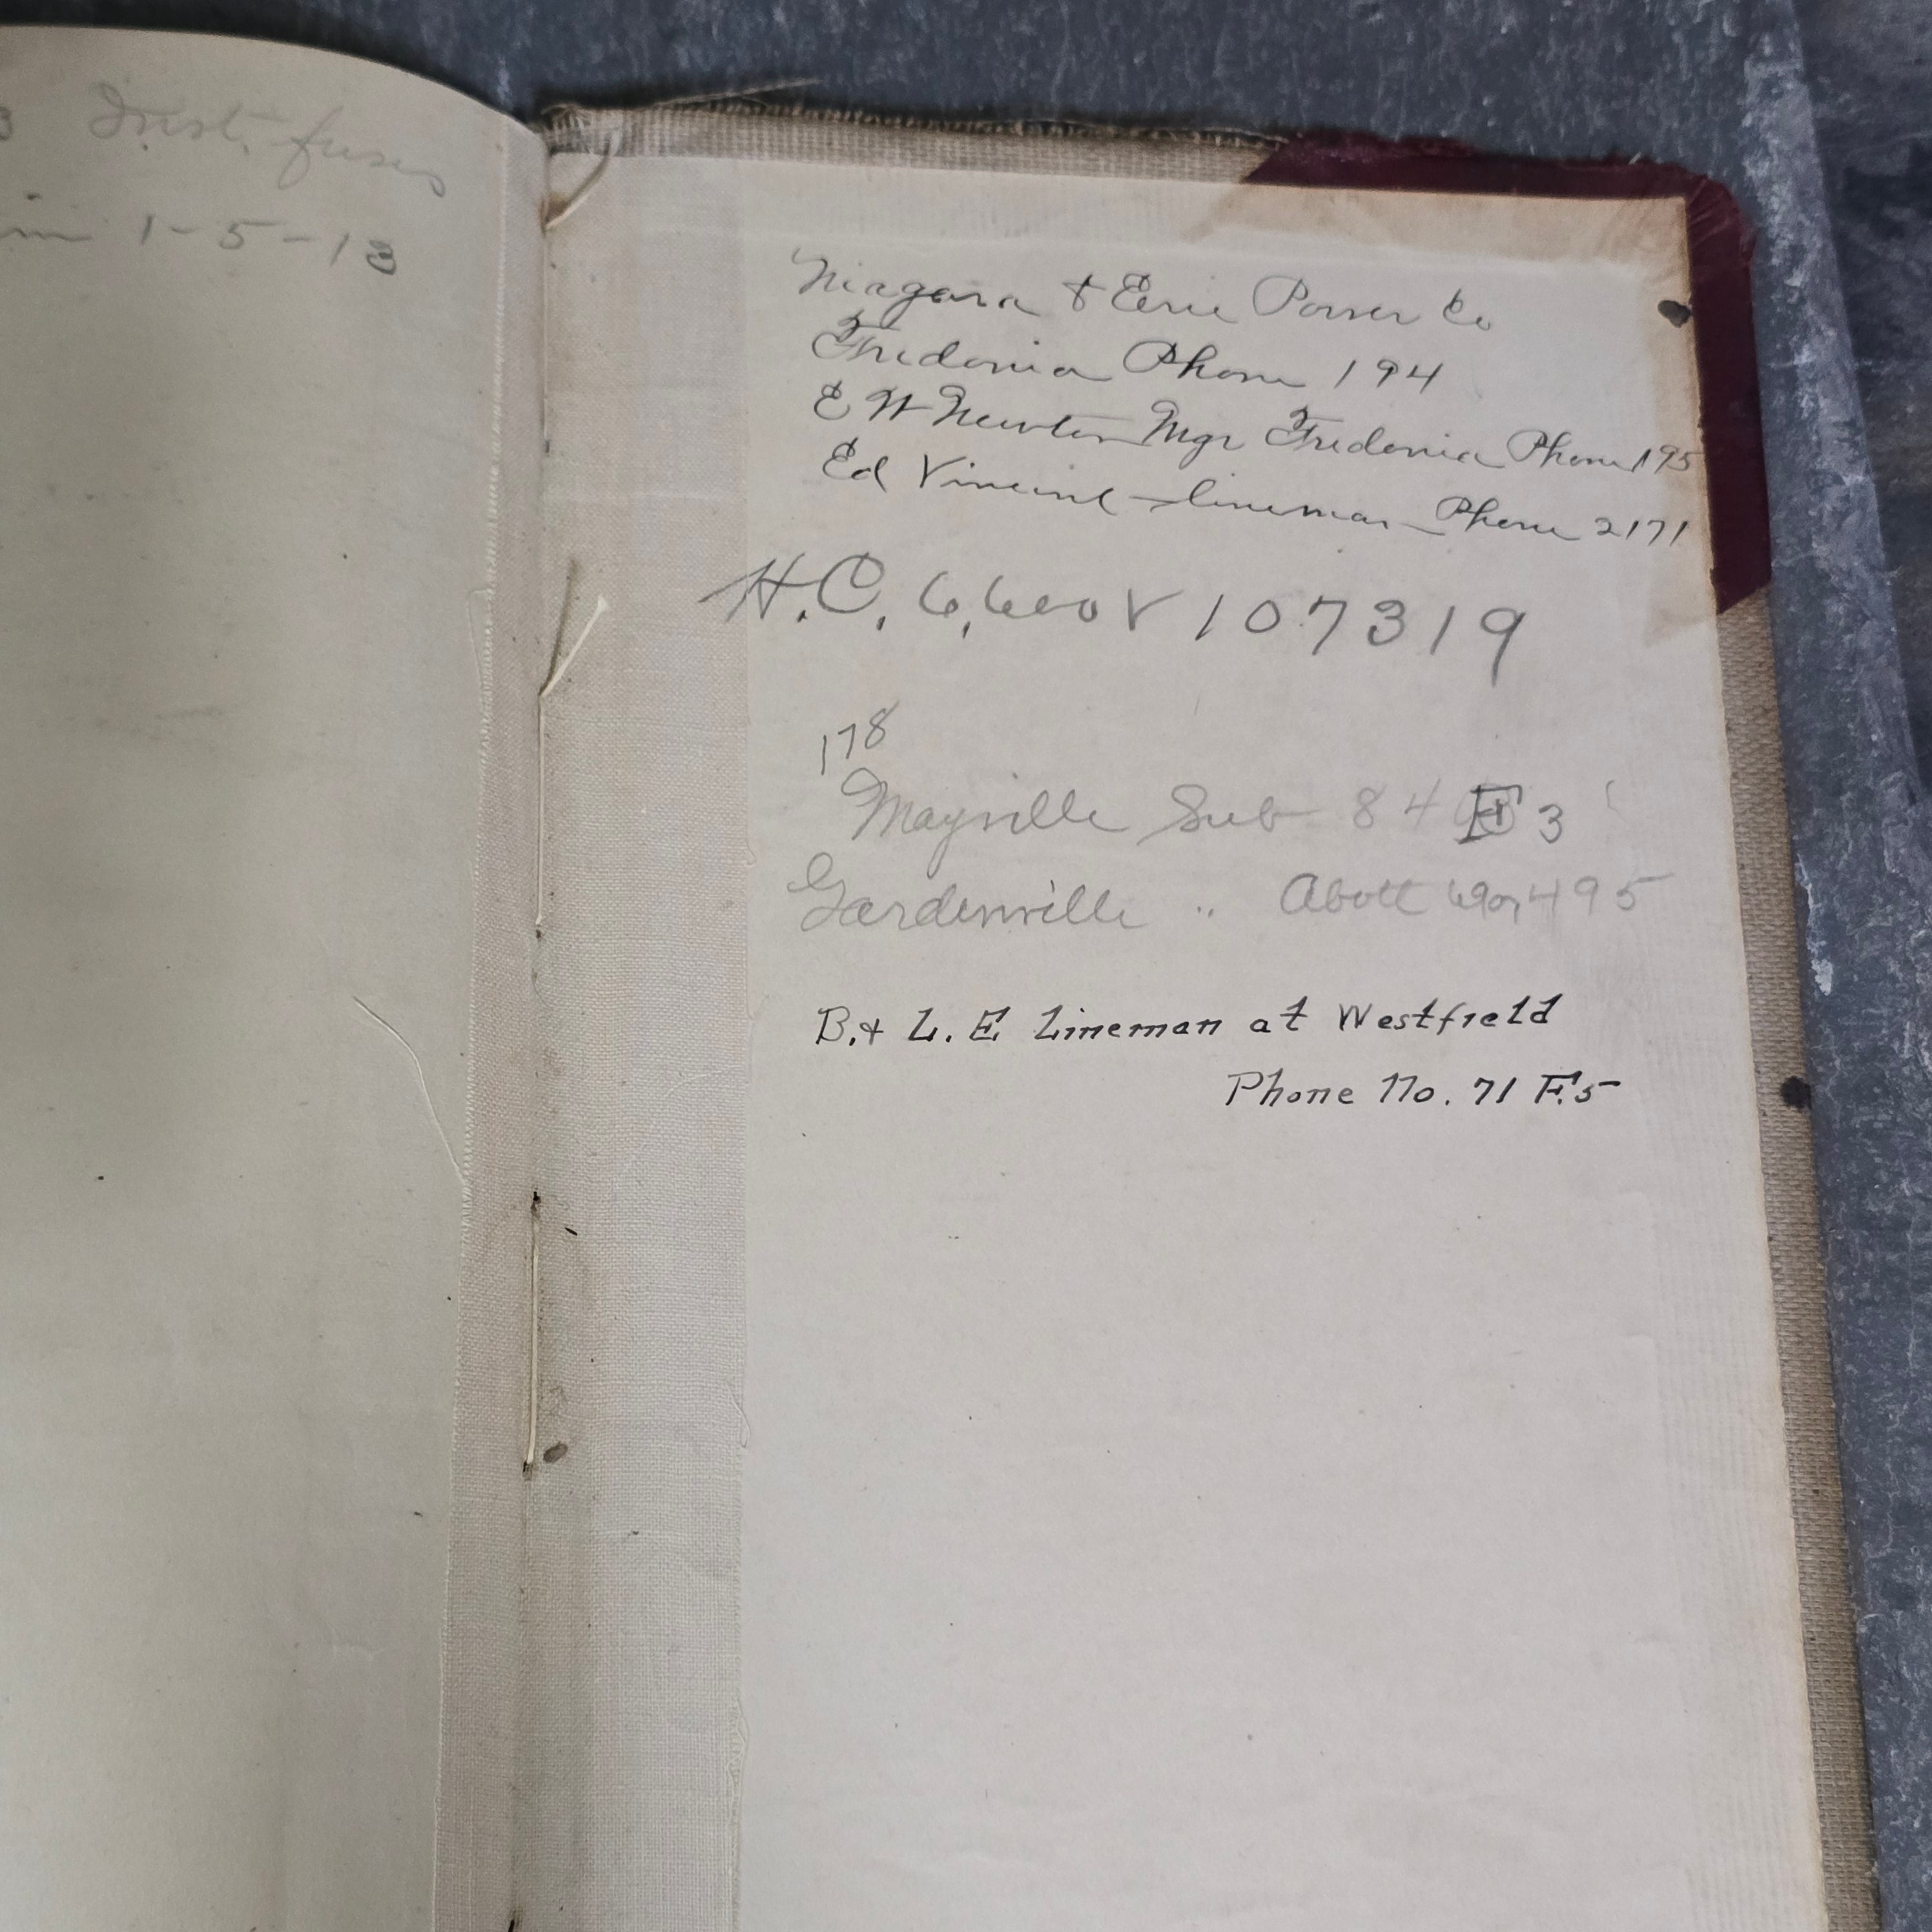 3 Inst. fuses
1-5-13
Niagara & Erie Power Co
Fredonia Phone 194
E W Newton Mgr Fredonia Phone 195
Ed Vincent - lineman - Phone 2171
H.C. 6,600 V 107319
178
Mayville Sub 84 F 3
Gardenville " Abott 495
B. & L. E Lineman at Westfield
Phone No. 71 F.5